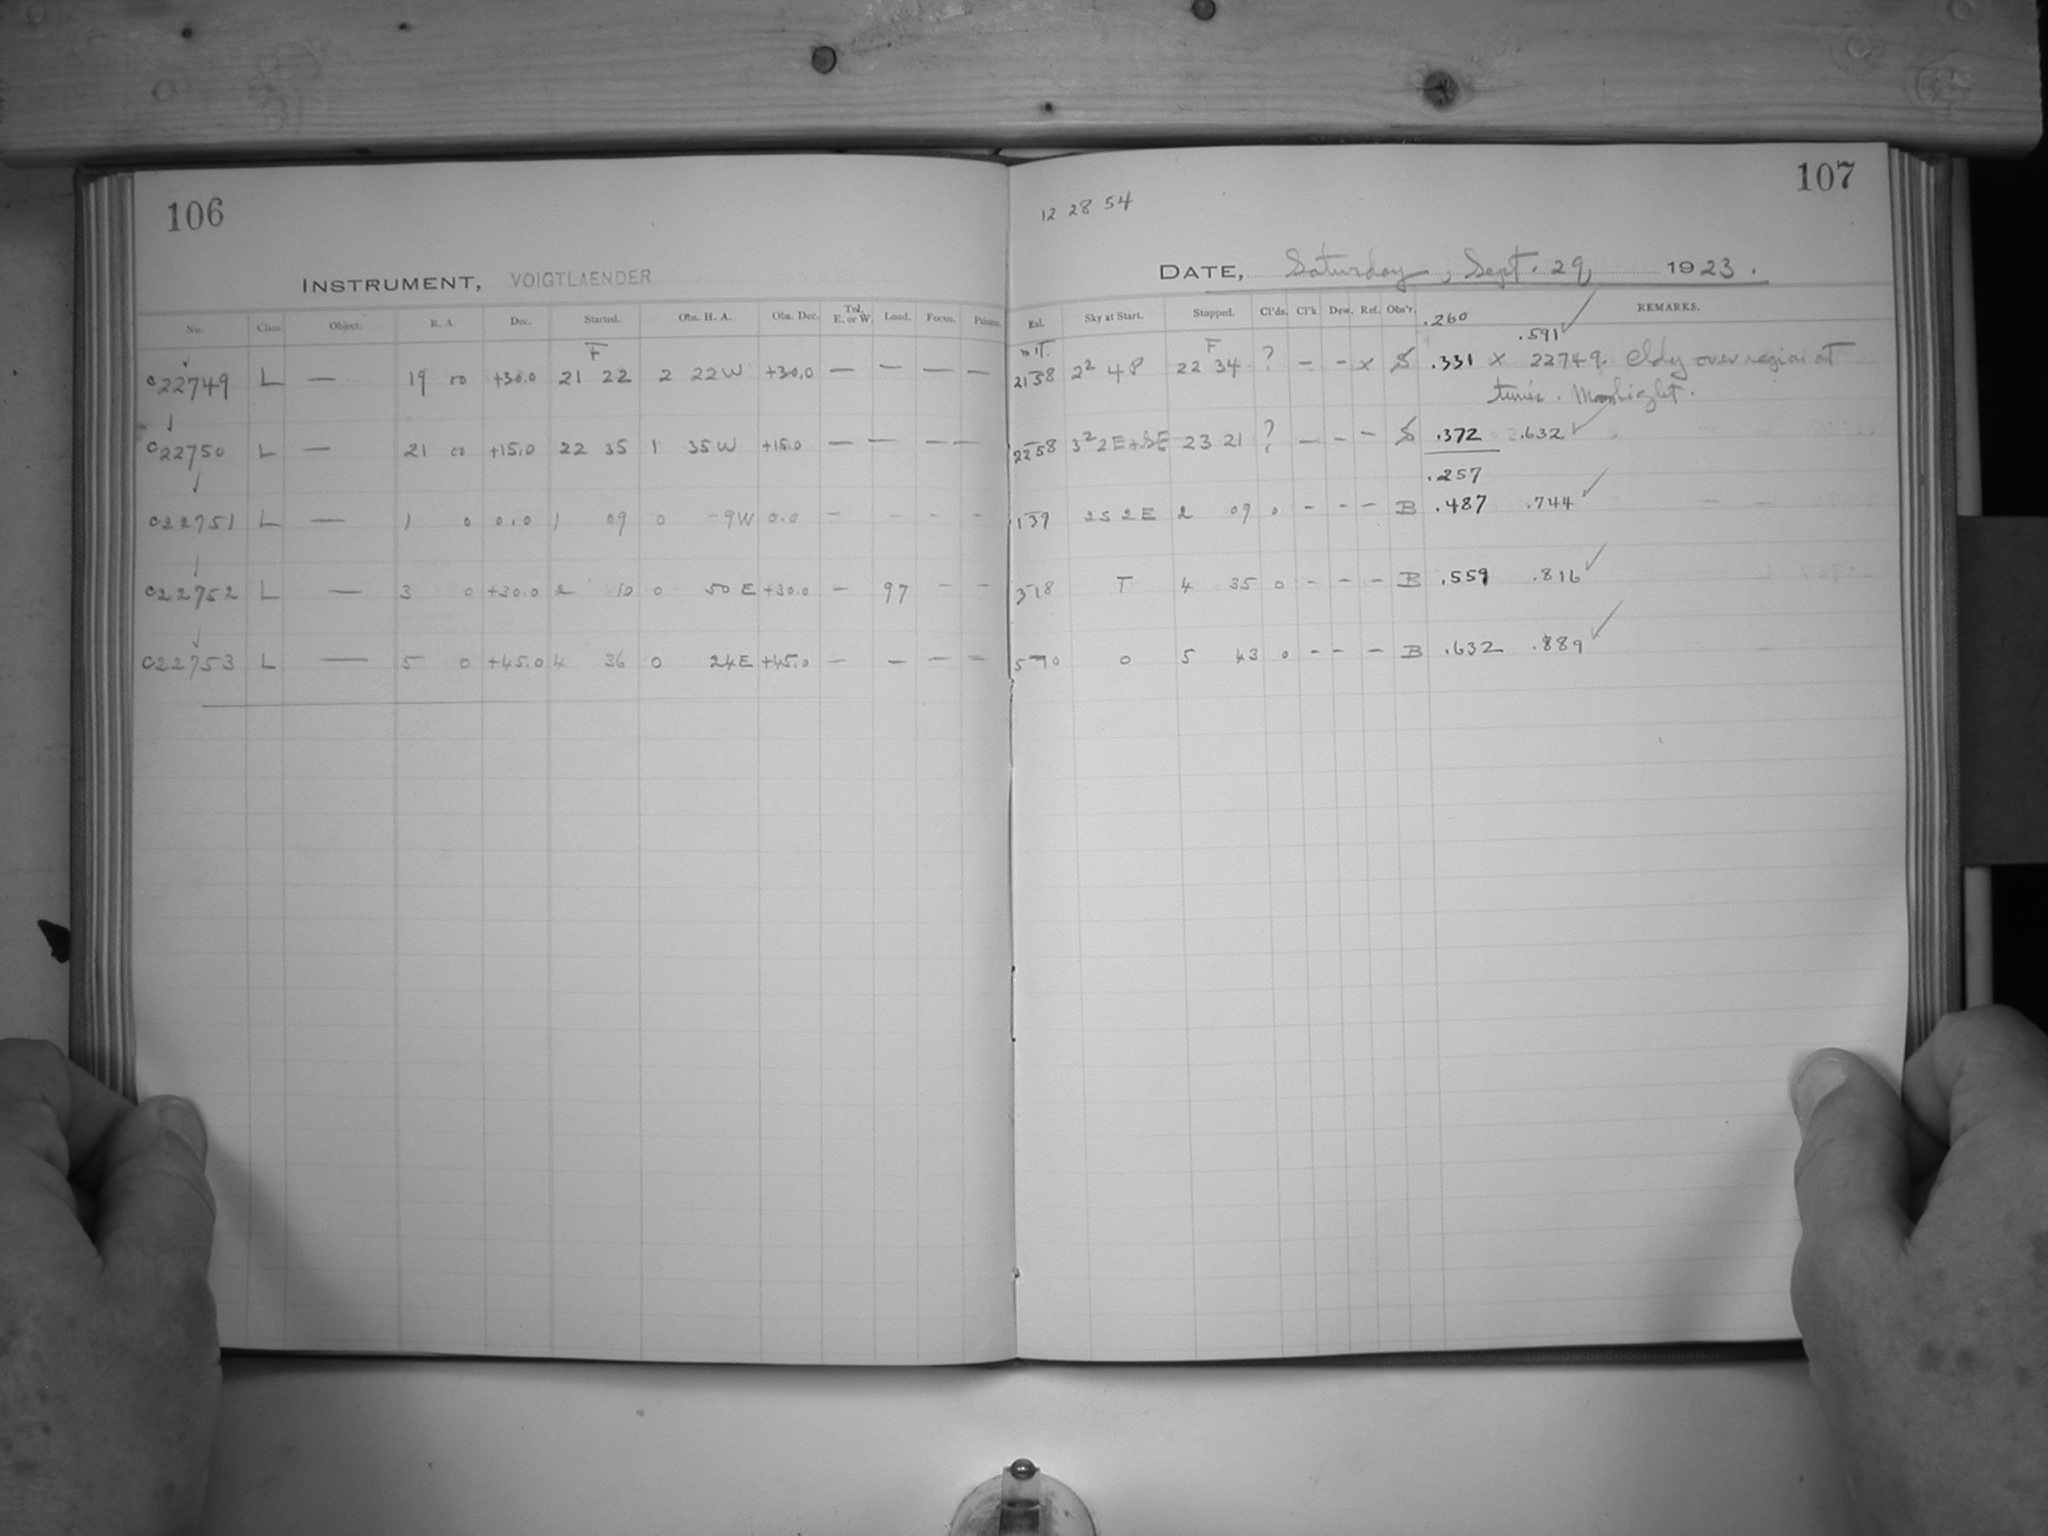 106
INSTRUMENT, VOIGTLAENDER
No. Class. Object. R. A. Dec. Started. Obs. H. A. Obs. Dec. Tel. E. or W. Load. Focus.
F
c22749 L — 19 00 +30.0 21 22 2 22W +30.0 — — — —
c22750 L — 21 00 +15.0 22 35 1 35W +15.0 — — — —
c22751 L — 1 0 0.0 1 09 0 -9W 0.0 — - - -
c22752 L — 3 0 +30.0 2 10 0 50 E +30.0 — 97 - -
c22753 L — 5 0 +45.0 4 36 0 24E +45.0 — — — —
107
12 28 54
DATE, Saturday, Sept. 29, 1923.
Sky at Start. Stopped. Cl'ds. Cl'k Dew. Ref. Obs'r. REMARKS.
.260
.591
F
2158 2² 4P 22 34 ? — — x S .331 x 22749. Cldy over region at
times. Moonlight.
2258 3² 2E+SE 23 21 ? — — — S .372 .632
.257
139 2S 2E 2 09 0 - - — B .487 .744
T 4 35 0 - - — B .559 .816
0 5 43 0 - - — B .632 .889